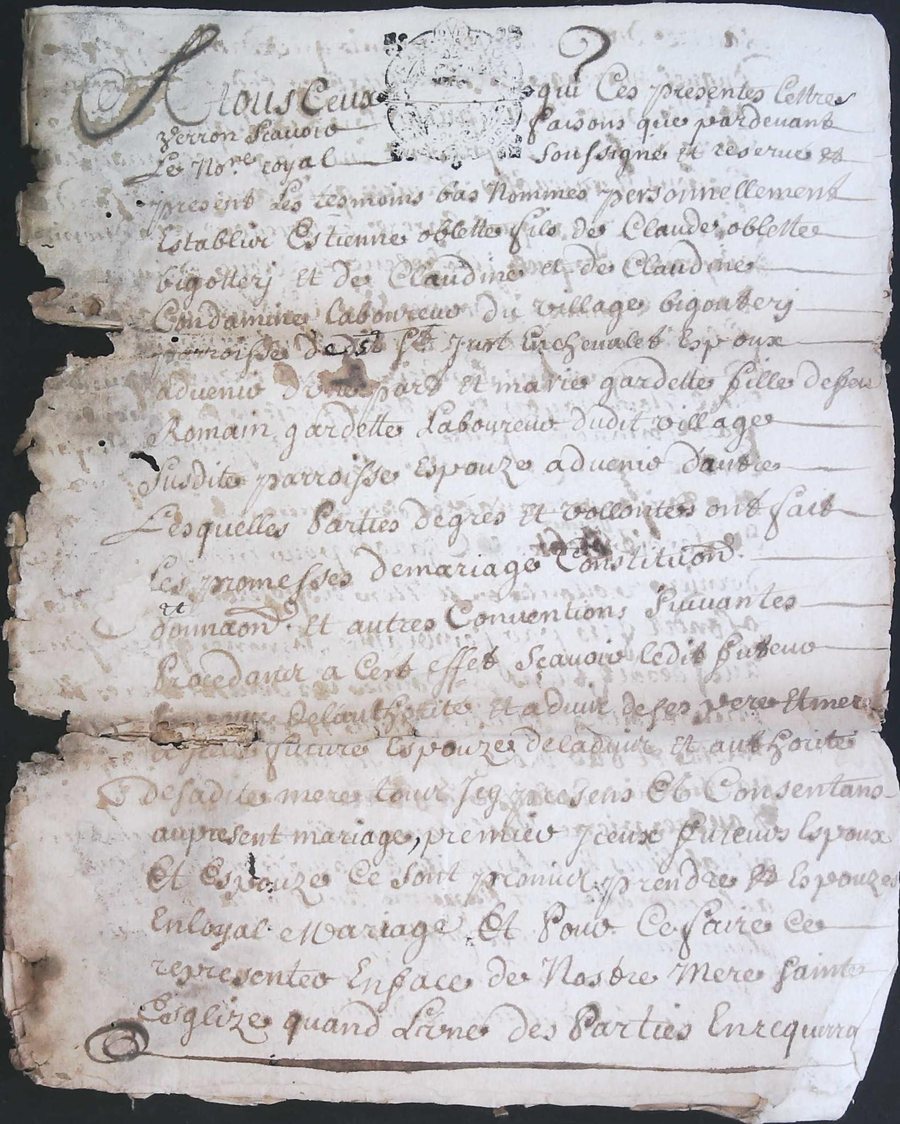 A tous Ceux qui Ces presentes Lettres
Verron scavoir faisons que pardevant
Le No.re royal soussigné et reservé et
present Les tesmoins bas Nommés personnellement
Establir Estienne oblette fils de Claude oblette
bigotterj et de Claudine et de Claudine
Condamine laboureur du village bigouterj
parroisse de St St Just Enchevalet Espoux
advenir d'une part Et marie gardette fille deffeu
Romain gardette Laboureur dudit village
Susdite parroisse Espouze advenir dautre
Lesquelles Parties degrés Et vollontés ont fait
Les promesses demariage Constitution
donnaon et autres Conventions Suivantes
Procedant a Cert effet Scavoir ledit futeur
delauthorité Et advis de ses pere Et mere
future Espouze deladvis Et authorité
desadite mere tour Jcy presens Et Consentans
aupresent mariage, premier Jceux futeurs Espoux
Et Espouze Ce sont promis prendre Espouzes
Enloyal Mariage Et Pour Ce faire Ce
representer Enface de Nostre Mere sainte
Esglize quand Lune des Parties Enrequerra